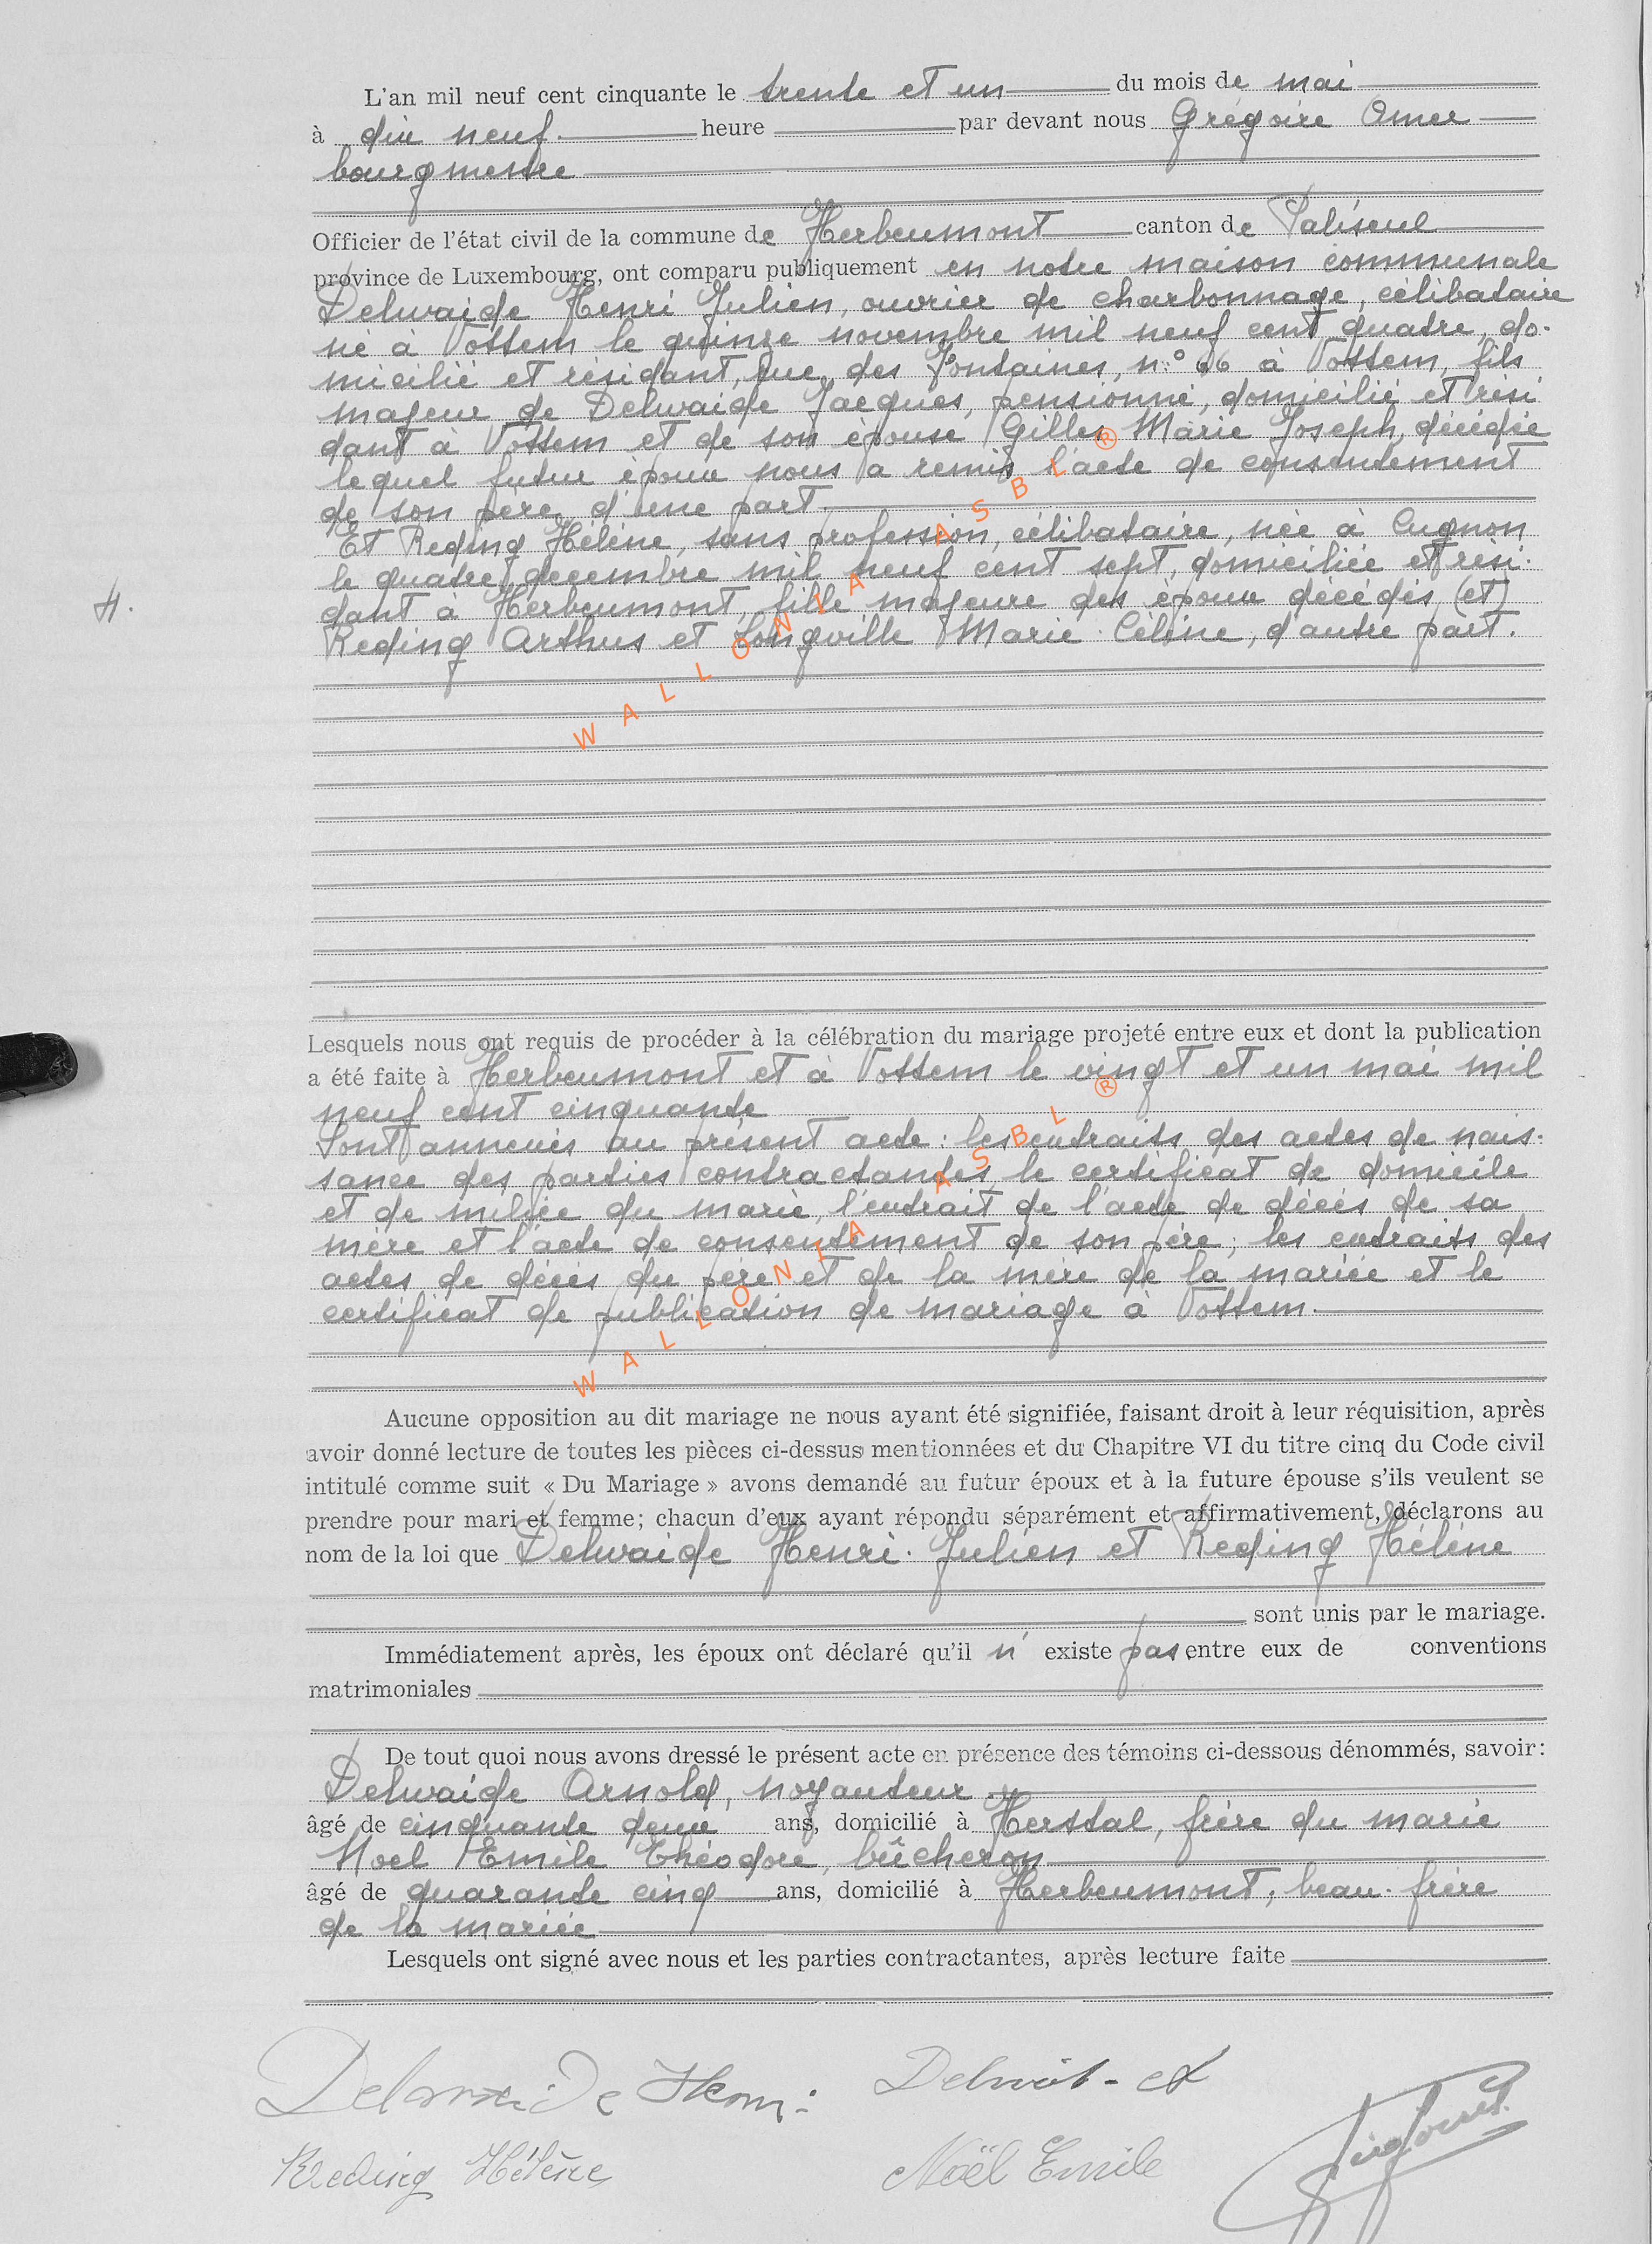 L'an mil neuf cent cinquante le trente et un du mois de mai
à dix neuf heure par devant nous Grégoire Omer
bourgmestre
Officier de l'état civil de la commune de Herbeumont canton de Paliseul
province de Luxembourg, ont comparu publiquement en notre maison communale
Delwaide Henri Julien, ouvrier de charbonnage, célibataire
né à Vottem le quinze novembre mil neuf cent quatre, do-
micilié et résidant, Rue des Fontaines, n° 66 à Vottem, fils
majeur de Delwaide Jacques, pensionné, domicilié et rési
dant à Vottem et de son épouse Gilles Marie Joseph, décédée
lequel futur époux nous a remis l'acte de consentement
de son père, d'une part
Et Reding Hélène, sans profession, célibataire, née à Cugnon
le quatre décembre mil neuf cent sept, domiciliée et rési-
4.
dant à Herbeumont, fille majeure des époux décédés (et)
Reding Arthur et Longville Marie-Céline, d'autre part.
WALLONIA ASBL ®
Lesquels nous ont requis de procéder à la célébration du mariage projeté entre eux et dont la publication
a été faite à Herbeumont et à Vottem le vingt et un mai mil
neuf cent cinquante
Sont annexés au présent acte : les extraits des actes de nais-
sance des parties contractantes, le certificat de domicile
et de milice du marié, l'extrait de l'acte de décès de sa
mère et l'acte de consentement de son père ; les extraits des
actes de décès du père et de la mère de la mariée et le
certificat de publication de mariage à Vottem.
WALLONIA ASBL ®
Aucune opposition au dit mariage ne nous ayant été signifiée, faisant droit à leur réquisition, après
avoir donné lecture de toutes les pièces ci-dessus mentionnées et du Chapitre VI du titre cinq du Code civil
intitulé comme suit « Du Mariage » avons demandé au futur époux et à la future épouse s'ils veulent se
prendre pour mari et femme; chacun d'eux ayant répondu séparément et affirmativement, déclarons au
nom de la loi que Delwaide Henri-Julien et Reding Hélène
sont unis par le mariage.
Immédiatement après, les époux ont déclaré qu'il n' existe pas entre eux de conventions
matrimoniales
De tout quoi nous avons dressé le présent acte en présence des témoins ci-dessous dénommés, savoir:
Delwaide Arnold, noyauteur
âgé de cinquante deux ans, domicilié à Herstal, frère du marié
Noël Emile Théodore, bûcheron
âgé de quarante cinq ans, domicilié à Herbeumont, beau-frère
de la mariée
Lesquels ont signé avec nous et les parties contractantes, après lecture faite
Delwaide Henri
Reding Hélène
Noël Emile